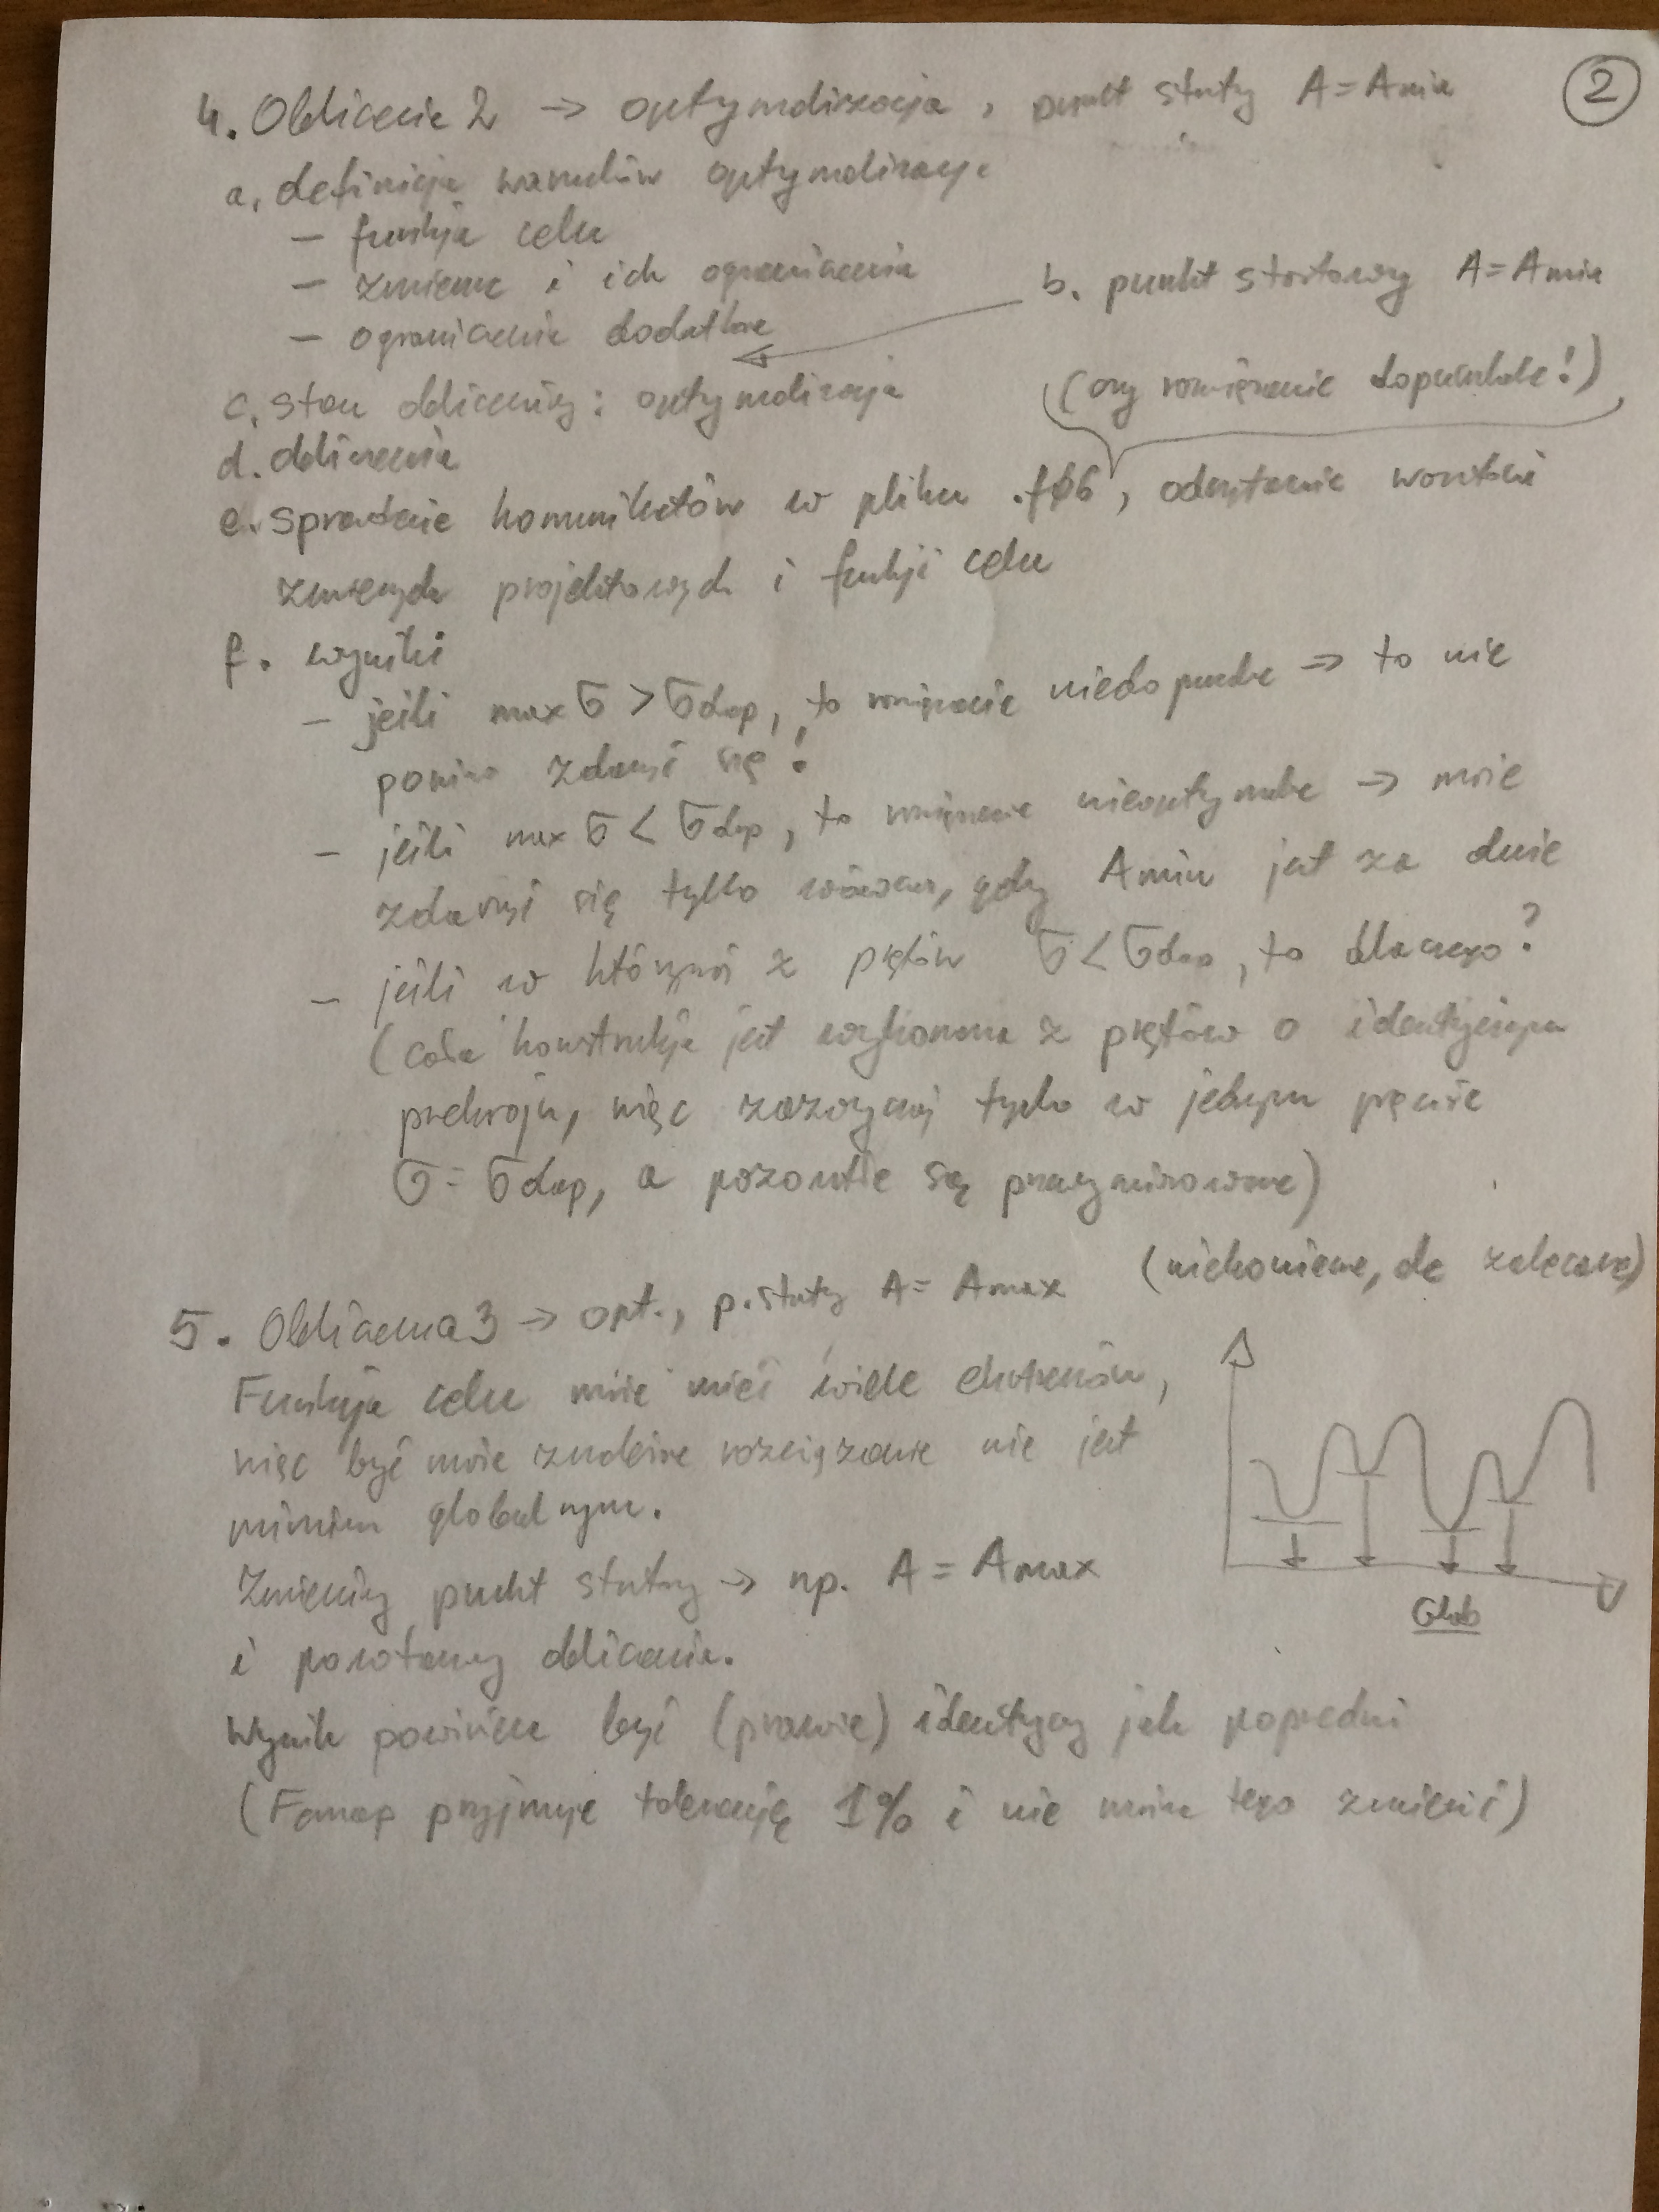 2
4. Obliczenia 2 → optymalizacja, punkt startowy A = Amin
a. definicja warunków optymalizacji
– funkcja celu
– zmienne i ich ograniczenia
b. punkt startowy A = Amin
– ograniczenia dodatkowe
(czy rozwiązanie dopuszczalne!)
c. stan obliczeniowy: optymalizacja
d. obliczenia
e. sprawdzenie komunikatów w pliku .f06, odczytanie wartości
zmiennych projektowych i funkcji celu
f. wyniki
– jeśli max σ > σdop, to rozwiązanie niedopuszczalne ⇒ to nie
powinno zdarzyć się!
– jeśli max σ < σdop, to rozwiązanie nieoptymalne → może
zdarzyć się tylko wówczas, gdy Amin jest za duże
– jeśli w którymś z prętów σ < σdop, to dlaczego?
(cała konstrukcja jest wykonana z prętów o identycznym
przekroju, więc zazwyczaj tylko w jednym pręcie
σ = σdop, a pozostałe są przewymiarowane)
(niekonieczne, ale zalecane)
5. Obliczenia 3 → opt., p. startowy A = Amax
Funkcja celu może mieć wiele ekstremów,
więc być może znalezione rozwiązanie nie jest
minimum globalnym.
Zmieniamy punkt startowy → np. A = Amax
Glob
i powtarzamy obliczenia.
Wynik powinien być (prawie) identyczny jak poprzedni
(Femap przyjmuje tolerancję 1% i nie można tego zmienić)